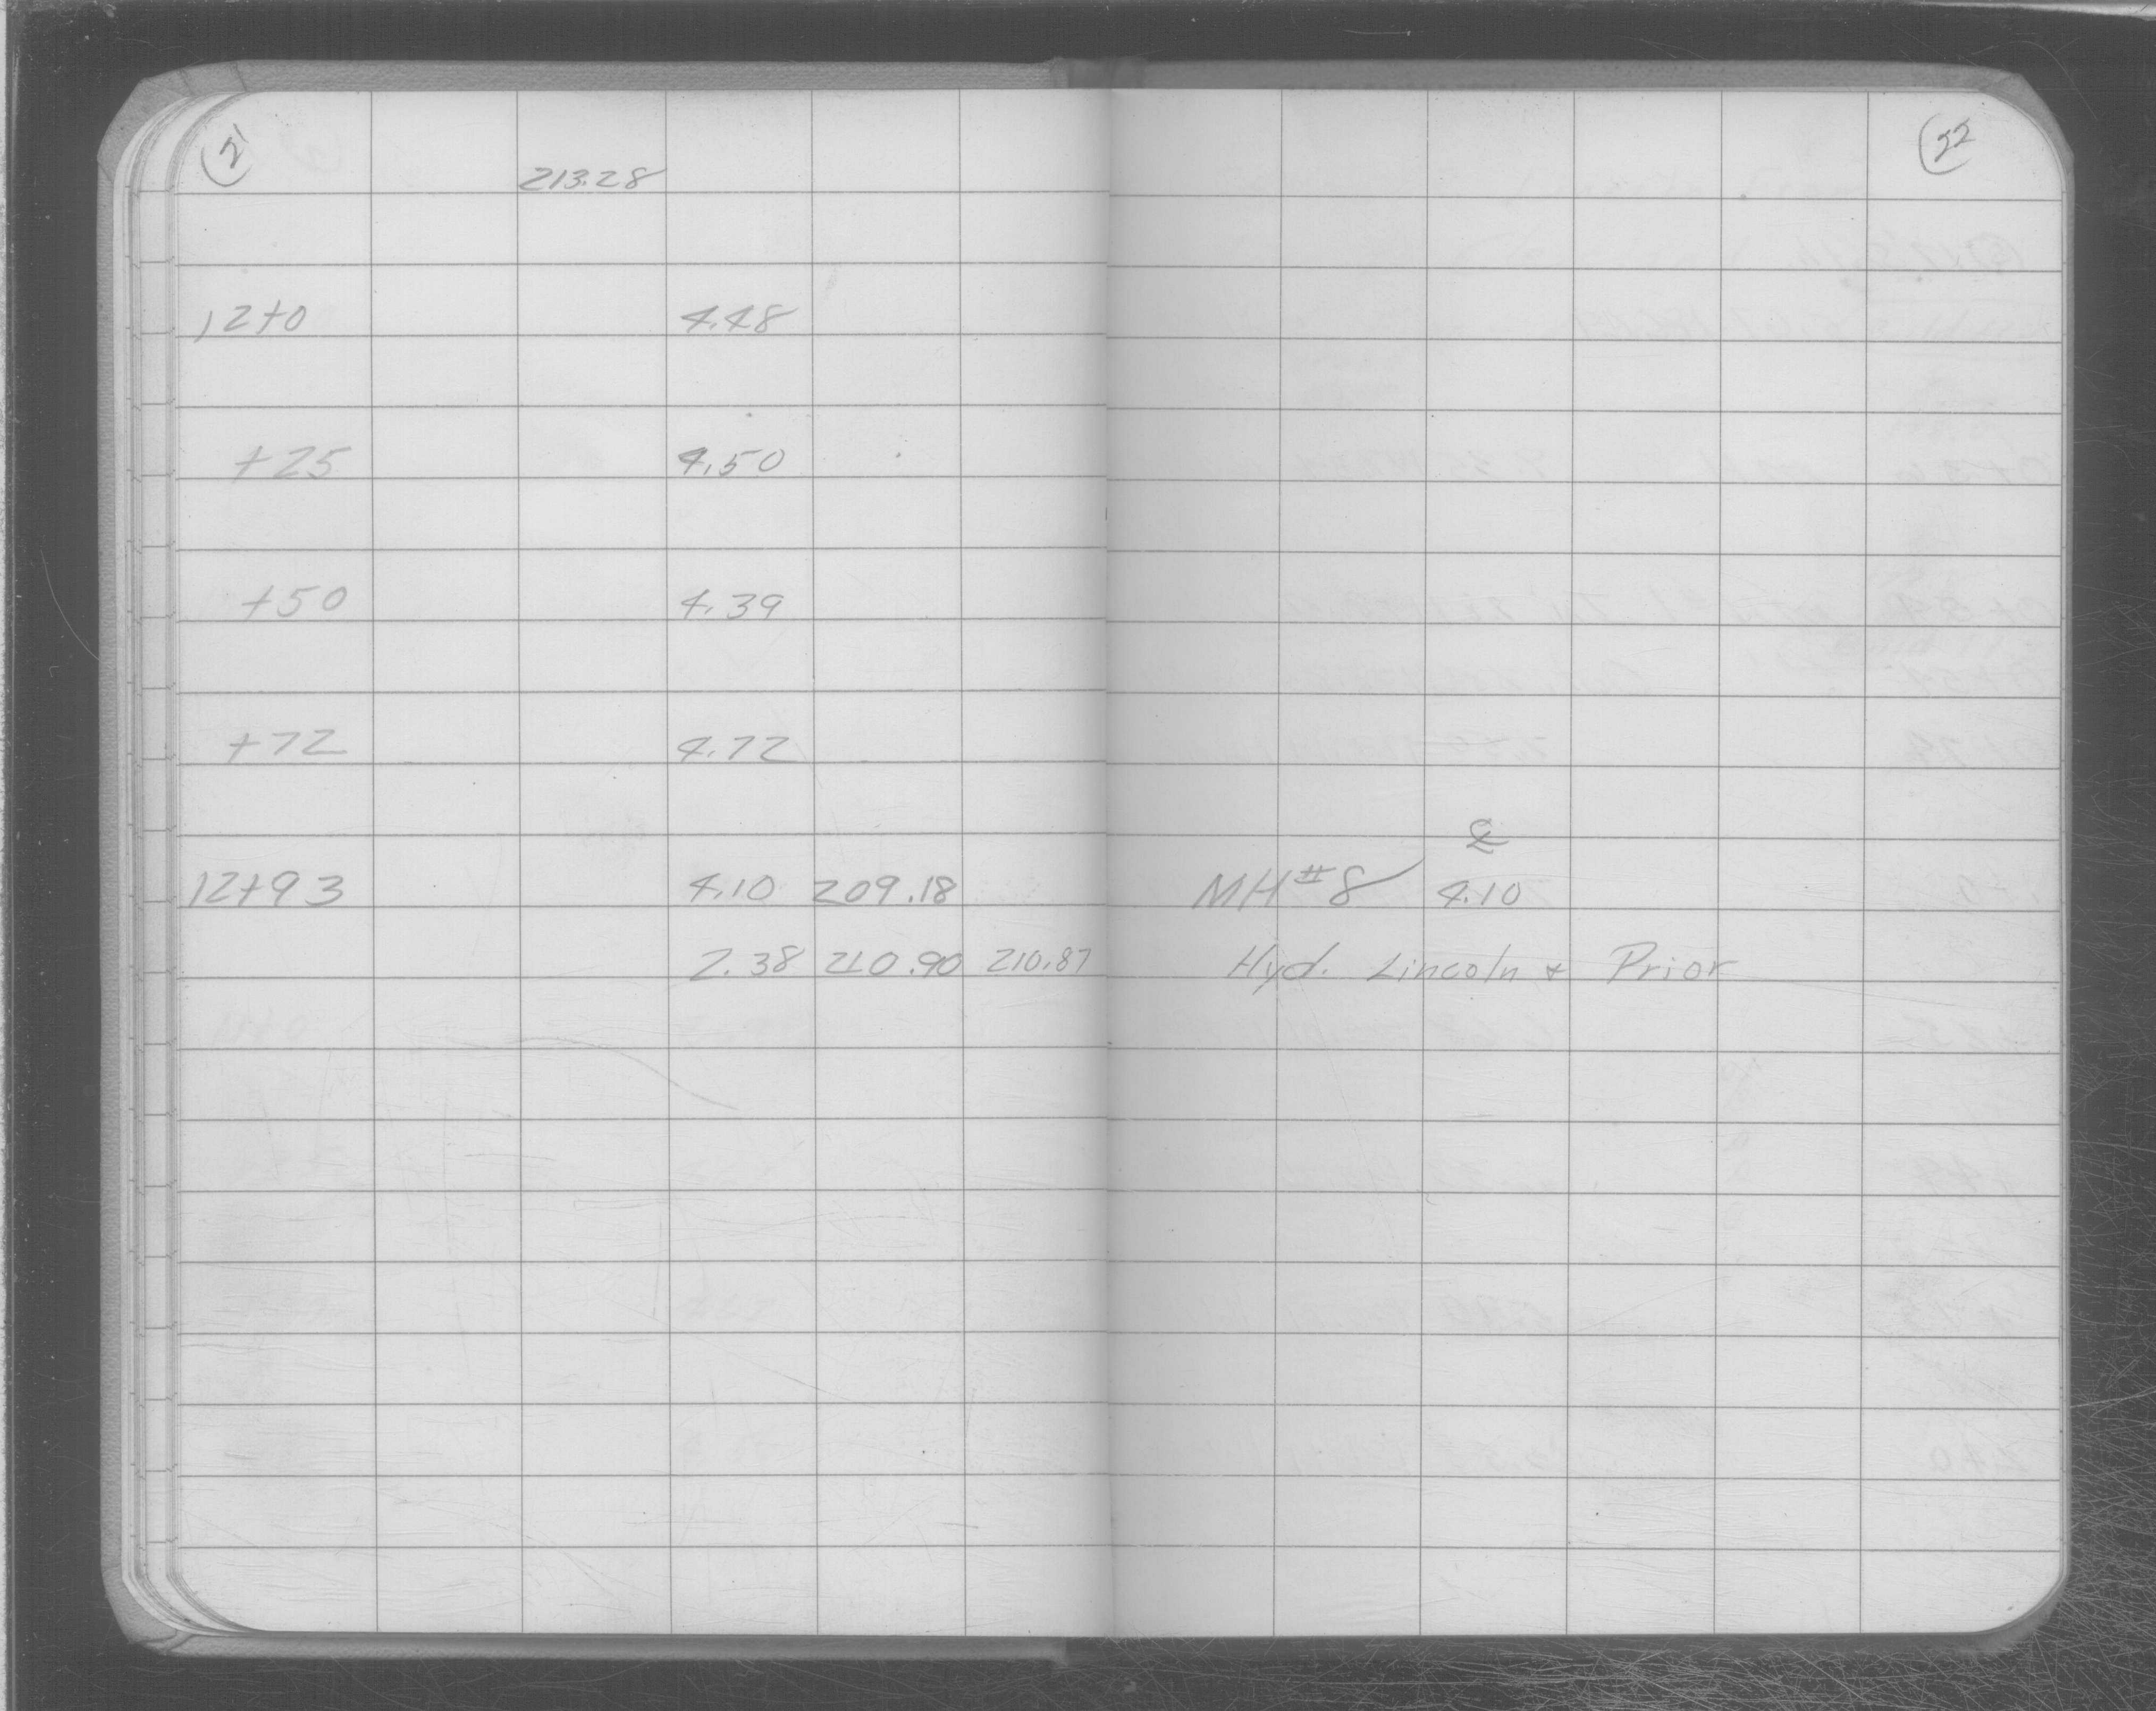 21 22
213.28
12+0 4.48
+25 4.50
+50 4.39
+72 4.72
℄
12+93 4.10 209.18 MH #8 4.10
2.38 210.90 210.87 Hyd. Lincoln & Prior